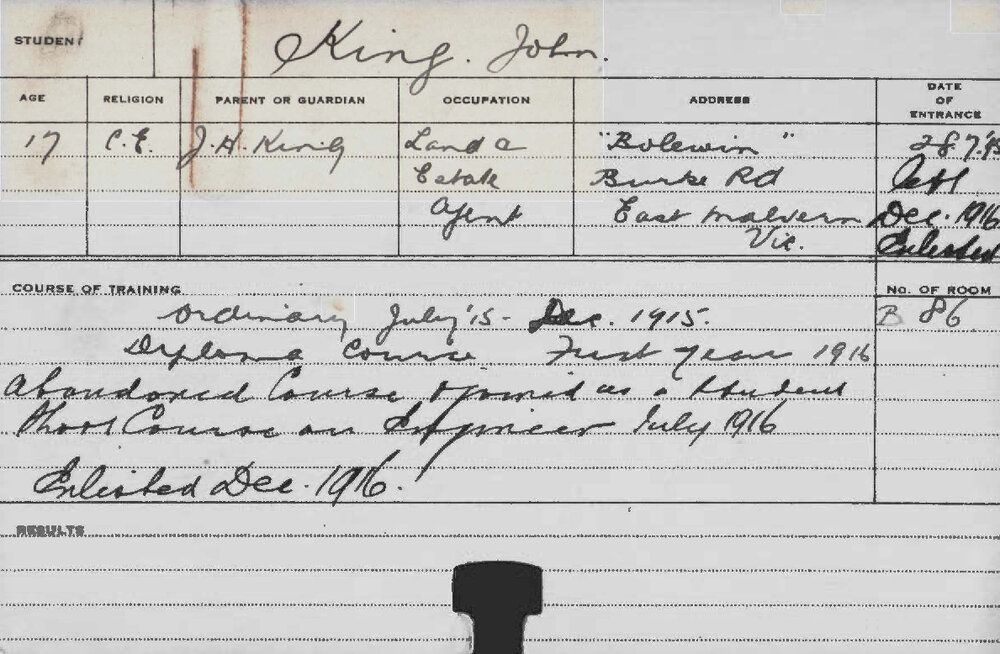 STUDENT King. John.
AGE RELIGION PARENT OR GUARDIAN OCCUPATION ADDRESS DATE OF ENTRANCE
17 C.E. J.H. King Land & "Bolewin" 28.7.'15
Estate Burke Rd Left
Agent East Malvern Dec. 1916
Vic. Enlisted
COURSE OF TRAINING No. OF ROOM
Ordinary July '15 - Dec. 1915. B 86
Diploma Course First year 1916
Abandoned Course & joined as a Student
Short Course on Engineer July 1916
Enlisted Dec. 1916.
RESULTS